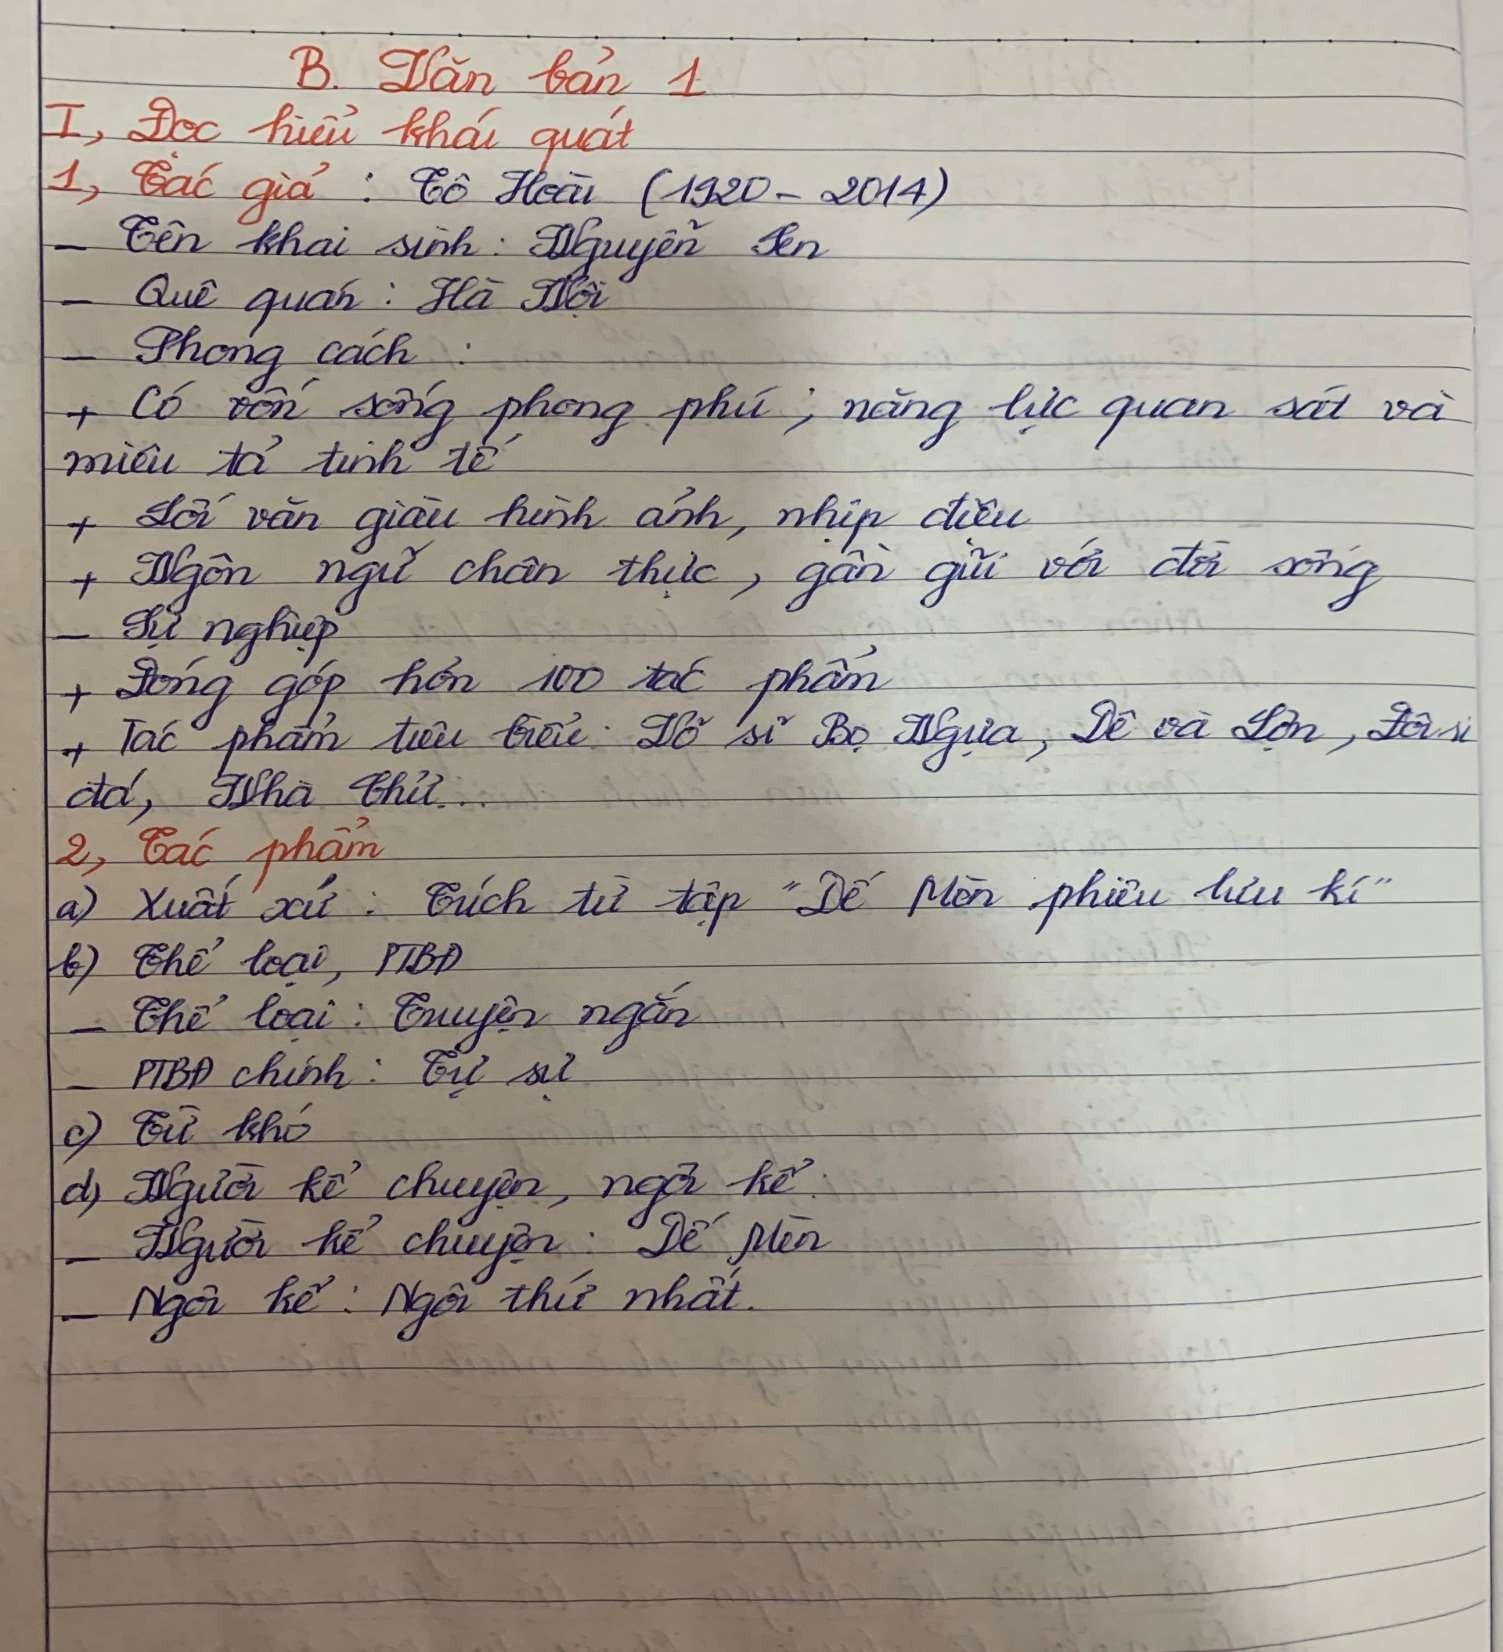 B. Văn bản 1
I, Đọc hiểu khái quát
1, Tác giả : Tô Hoài (1920 - 2014)
- Tên khai sinh : Nguyễn Sen
- Quê quán : Hà Nội
- Phong cách :
+ Có vốn sống phong phú ; năng lực quan sát và
miêu tả tinh tế
+ Lối văn giàu hình ảnh, nhịp điệu
+ Ngôn ngữ chân thực, gần gũi với đời sống
- Sự nghiệp
+ Đóng góp hơn 100 tác phẩm
+ Tác phẩm tiêu biểu : Võ sĩ Bọ Ngựa, Dê và Lợn, Đôi ri
đá, Nhà Chử...
2, Tác phẩm
a) Xuất xứ : Trích từ tập "Dế Mèn phiêu lưu kí"
b) Thể loại, PTBĐ
- Thể loại : Truyện ngắn
- PTBĐ chính : Tự sự
c) Từ khó
d) Người kể chuyện, ngôi kể :
- Người kể chuyện : Dế Mèn
- Ngôi kể : Ngôi thứ nhất.